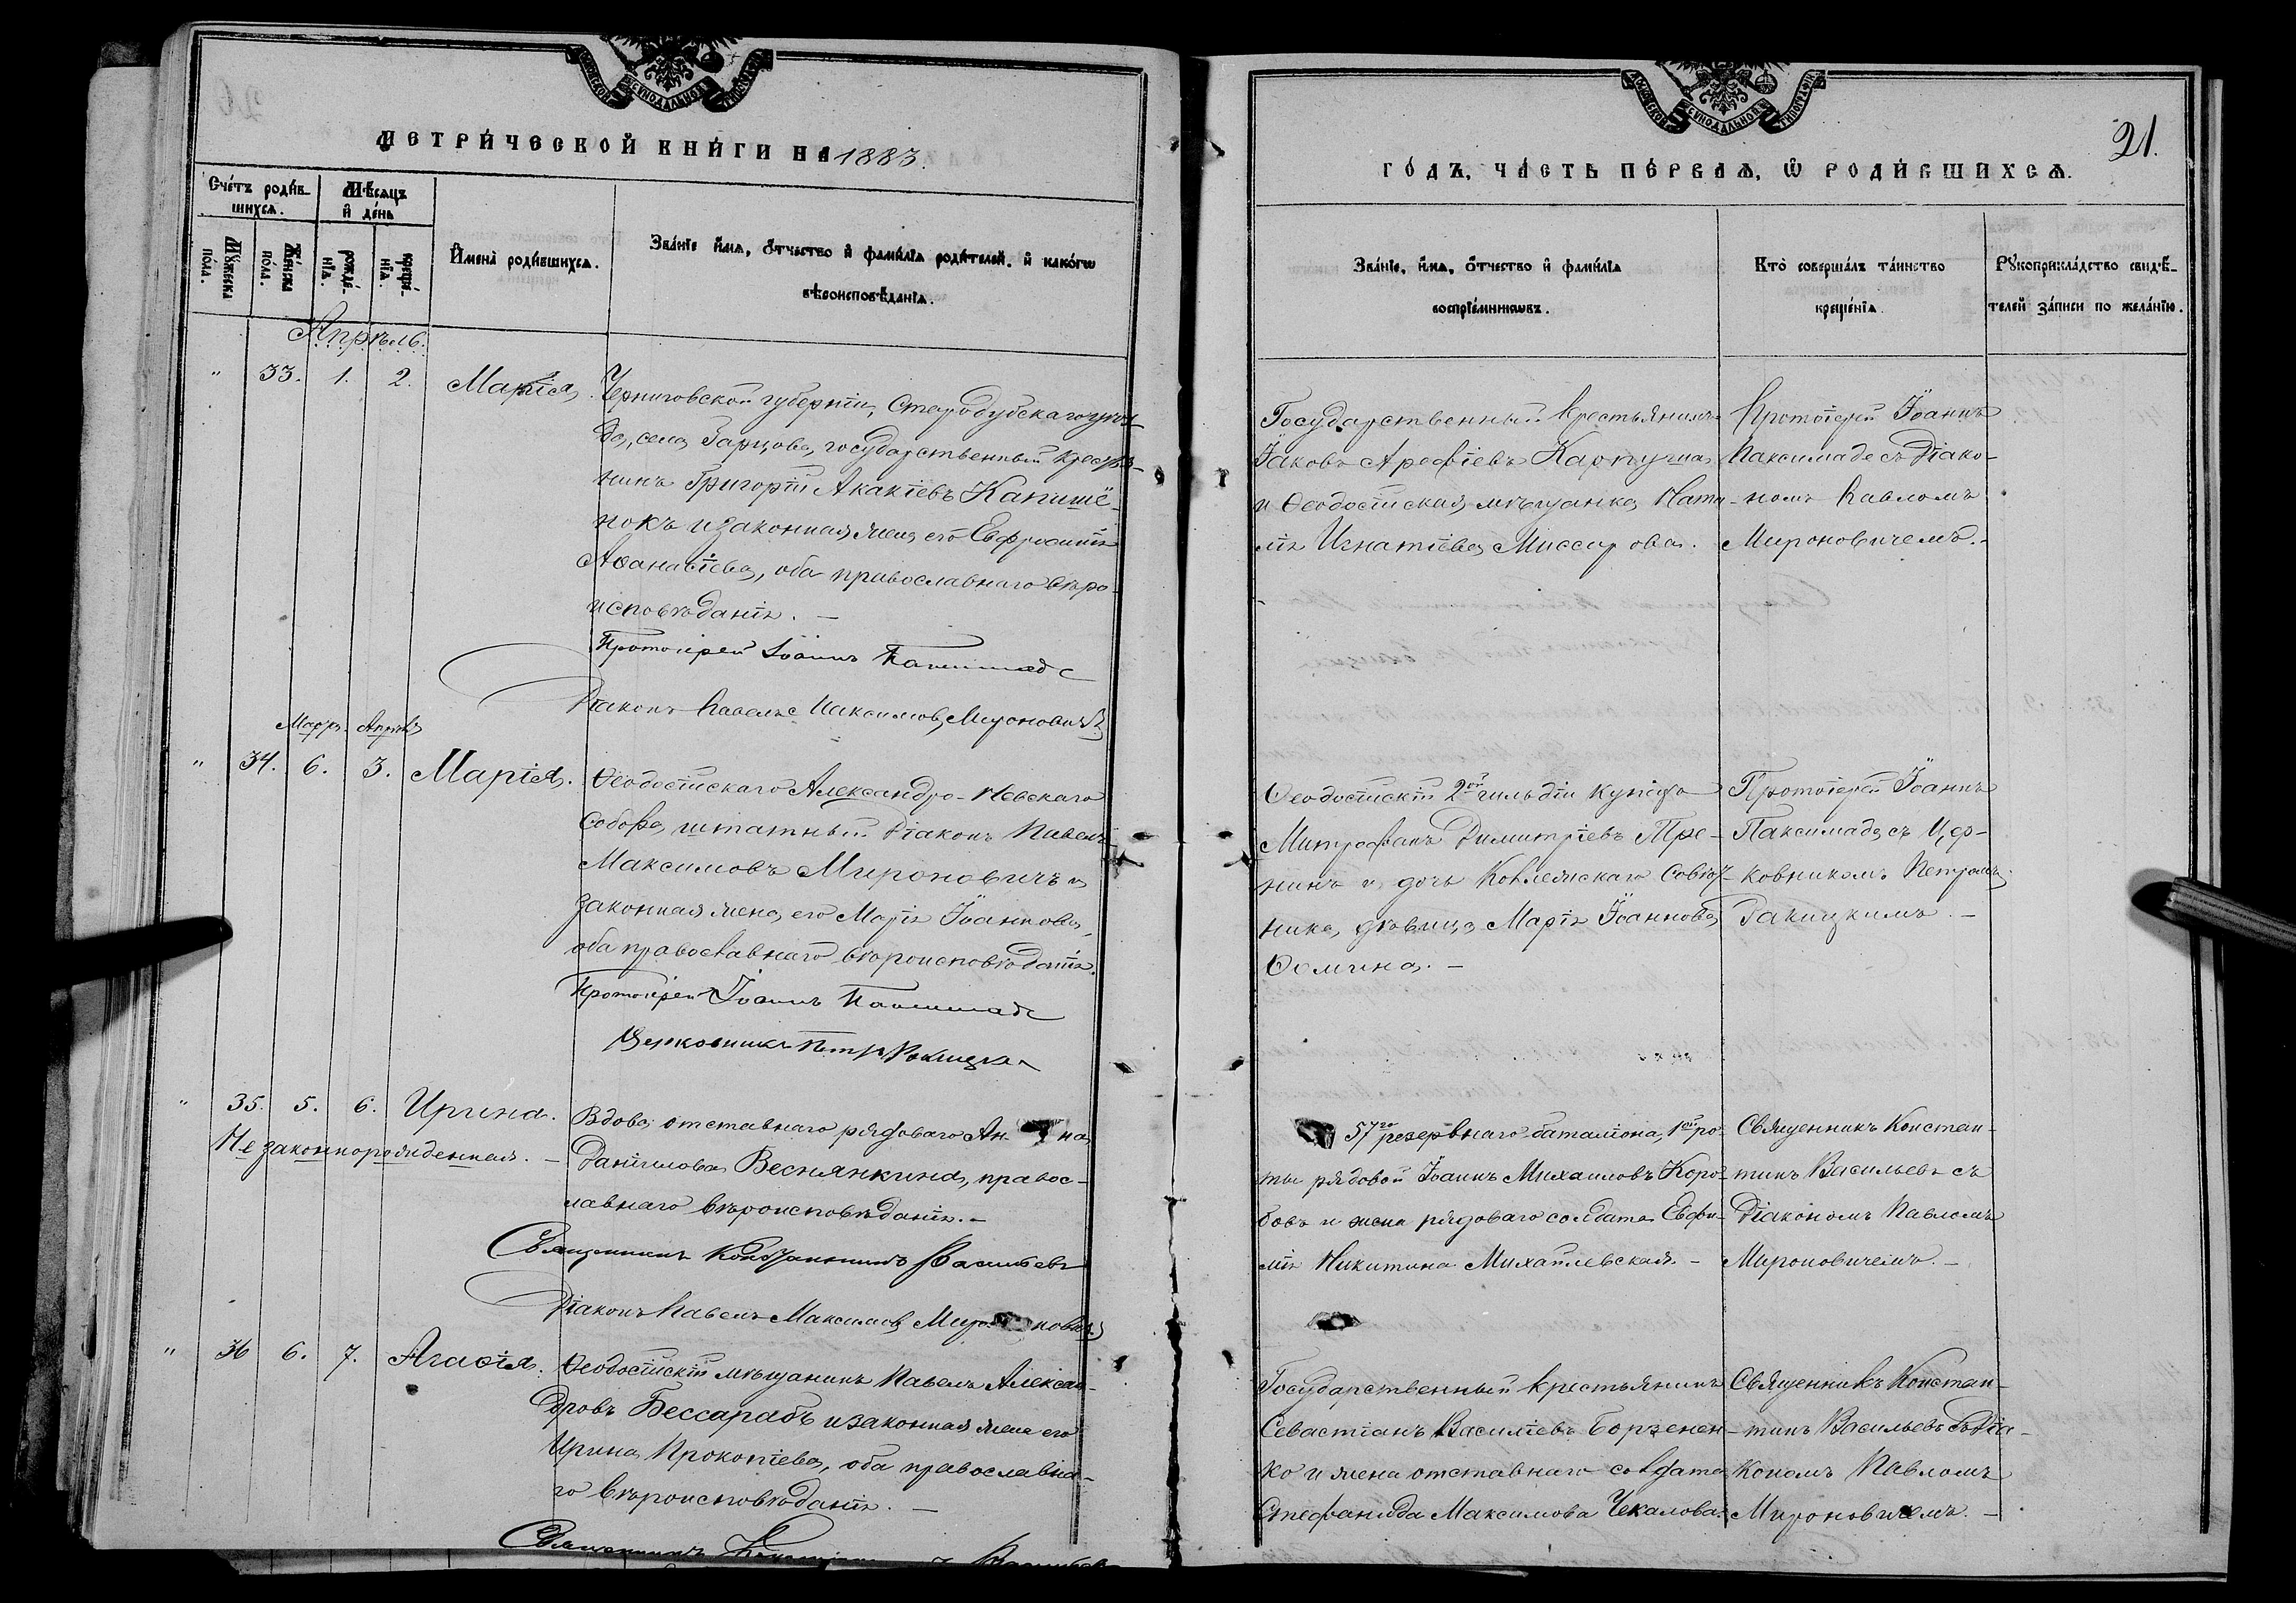 МОСКОВСКОЙ СѴНОДАЛЬНОЙ ТИПОГРАФІИ
МЕТРИ́ЧЕСКОЙ КНИ́ГИ НА 1883.
Сче́тъ роди́в-
шихсѧ.
Мѣ́сѧцъ
и҆ де́нь
Мꙋ́жеска
по́ла.
Же́нска
по́ла.
рожде́-
нїѧ.
креще́-
нїѧ.
И҆мена̀ роди́вшихсѧ.
Зва́нїе и҆́мѧ, ѻ҆́тчество и҆ фами́лїѧ роди́телей, и҆ како́гѡ
вѣроисповѣ́данїѧ.
Апрѣль.
" 33. 1. 2. Марія.
Черниговской губерніи, Стародубскаго уѣз-
да, села Зарцова, государственный крестья-
нинъ Григорій Акакіевъ Капишё-
нокъ и законная жена его Евфросинія
Аѳанасіева, оба православнаго вѣро-
исповѣданія. —
Протоіерей Іоаннъ Паксимаде
Діаконъ Павелъ Максимовъ Мироновичъ
Мартъ. Апрѣль
" 34. 6. 3. Марія.
Ѳеодосійскаго Александро-Невскаго
Собора, штатный Діаконъ Павелъ
Максимовъ Мироновичъ и
законная жена его Марія Іоаннова,
оба православнаго вѣроисповѣданія.
Протоіерей Іоаннъ Паксимаде
Церковникъ Петръ Ракицкій
" 35. 5. 6. Ирина.
Незаконнорожденная. —
Вдова отставнаго рядоваго Анна
Даніилова Веснянкина, правос-
лавнаго вѣроисповѣданія. —
Священникъ Константинъ Васильевъ
Діаконъ Павелъ Максимовъ Мироновичъ
" 36 6. 7. Агаѳія.
Ѳеодосійскій мѣщанинъ Павелъ Алексан-
дровъ Бессарабъ и законная жена его
Ирина Прокопіева, оба православна-
го вѣроисповѣданія. —
Священникъ Константинъ Васильевъ
МОСКОВСКОЙ СѴНОДАЛЬНОЙ ТИПОГРАФІИ
21.
ГО́ДЪ, ЧА́СТЬ ПЕ́РВАѦ, Ѽ РОДИ́ВШИХСѦ.
Зва́нїе, и҆́мѧ, ѻ҆́тчество и҆ фами́лїѧ
воспрїе́мникѡвъ.
Кто̀ соверша́лъ та́инство
креще́нїѧ.
Рꙋкоприкла́дство свидѣ́-
телей за́писи по жела́нїю.
Государственный крестьянинъ
Іаковъ Арефіевъ Карпуша
и Ѳеодосійская мѣщанка Ната-
лія Игнатіева Миссирова.
Протоіерей Іоаннъ
Паксимаде съ Діако-
номъ Павломъ
Мироновичемъ. —
Ѳеодосійскій 2ой гильдіи купецъ
Митрофанъ Димитріевъ Тре-
нинъ и дочь Коллежскаго Совѣт-
ника, дѣвица Марія Іоаннова
Ѳомина. —
Протоіерей Іоаннъ
Паксимаде съ Цер-
ковникомъ Петромъ
Ракицкимъ. —
57го резервнаго баталіона, 1ой ро-
ты рядовой Іоаннъ Михаиловъ Коро-
бовъ и жена рядоваго солдата Евфи-
мія Никитина Михайлевская. —
Священникъ Констан-
тинъ Васильевъ съ
Діакономъ Павломъ
Мироновичемъ. —
Государственный крестьянинъ
Севастіанъ Василіевъ Борзенен-
ко и жена отставнаго солдата
Стефанида Максимова Чекалова.
Священникъ Констан-
тинъ Васильевъ съ Діа-
кономъ Павломъ
Мироновичемъ. —